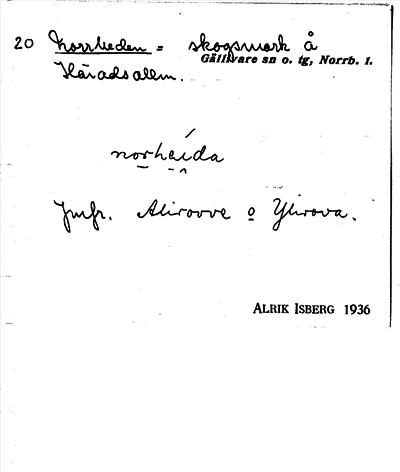 20 Norrheden = skogsmark å
Gällivare sn o. tg, Norrb. l.
Häradsallm.
norheida
Jmfr. Alirovve o Ylirova.
ALRIK ISBERG 1936